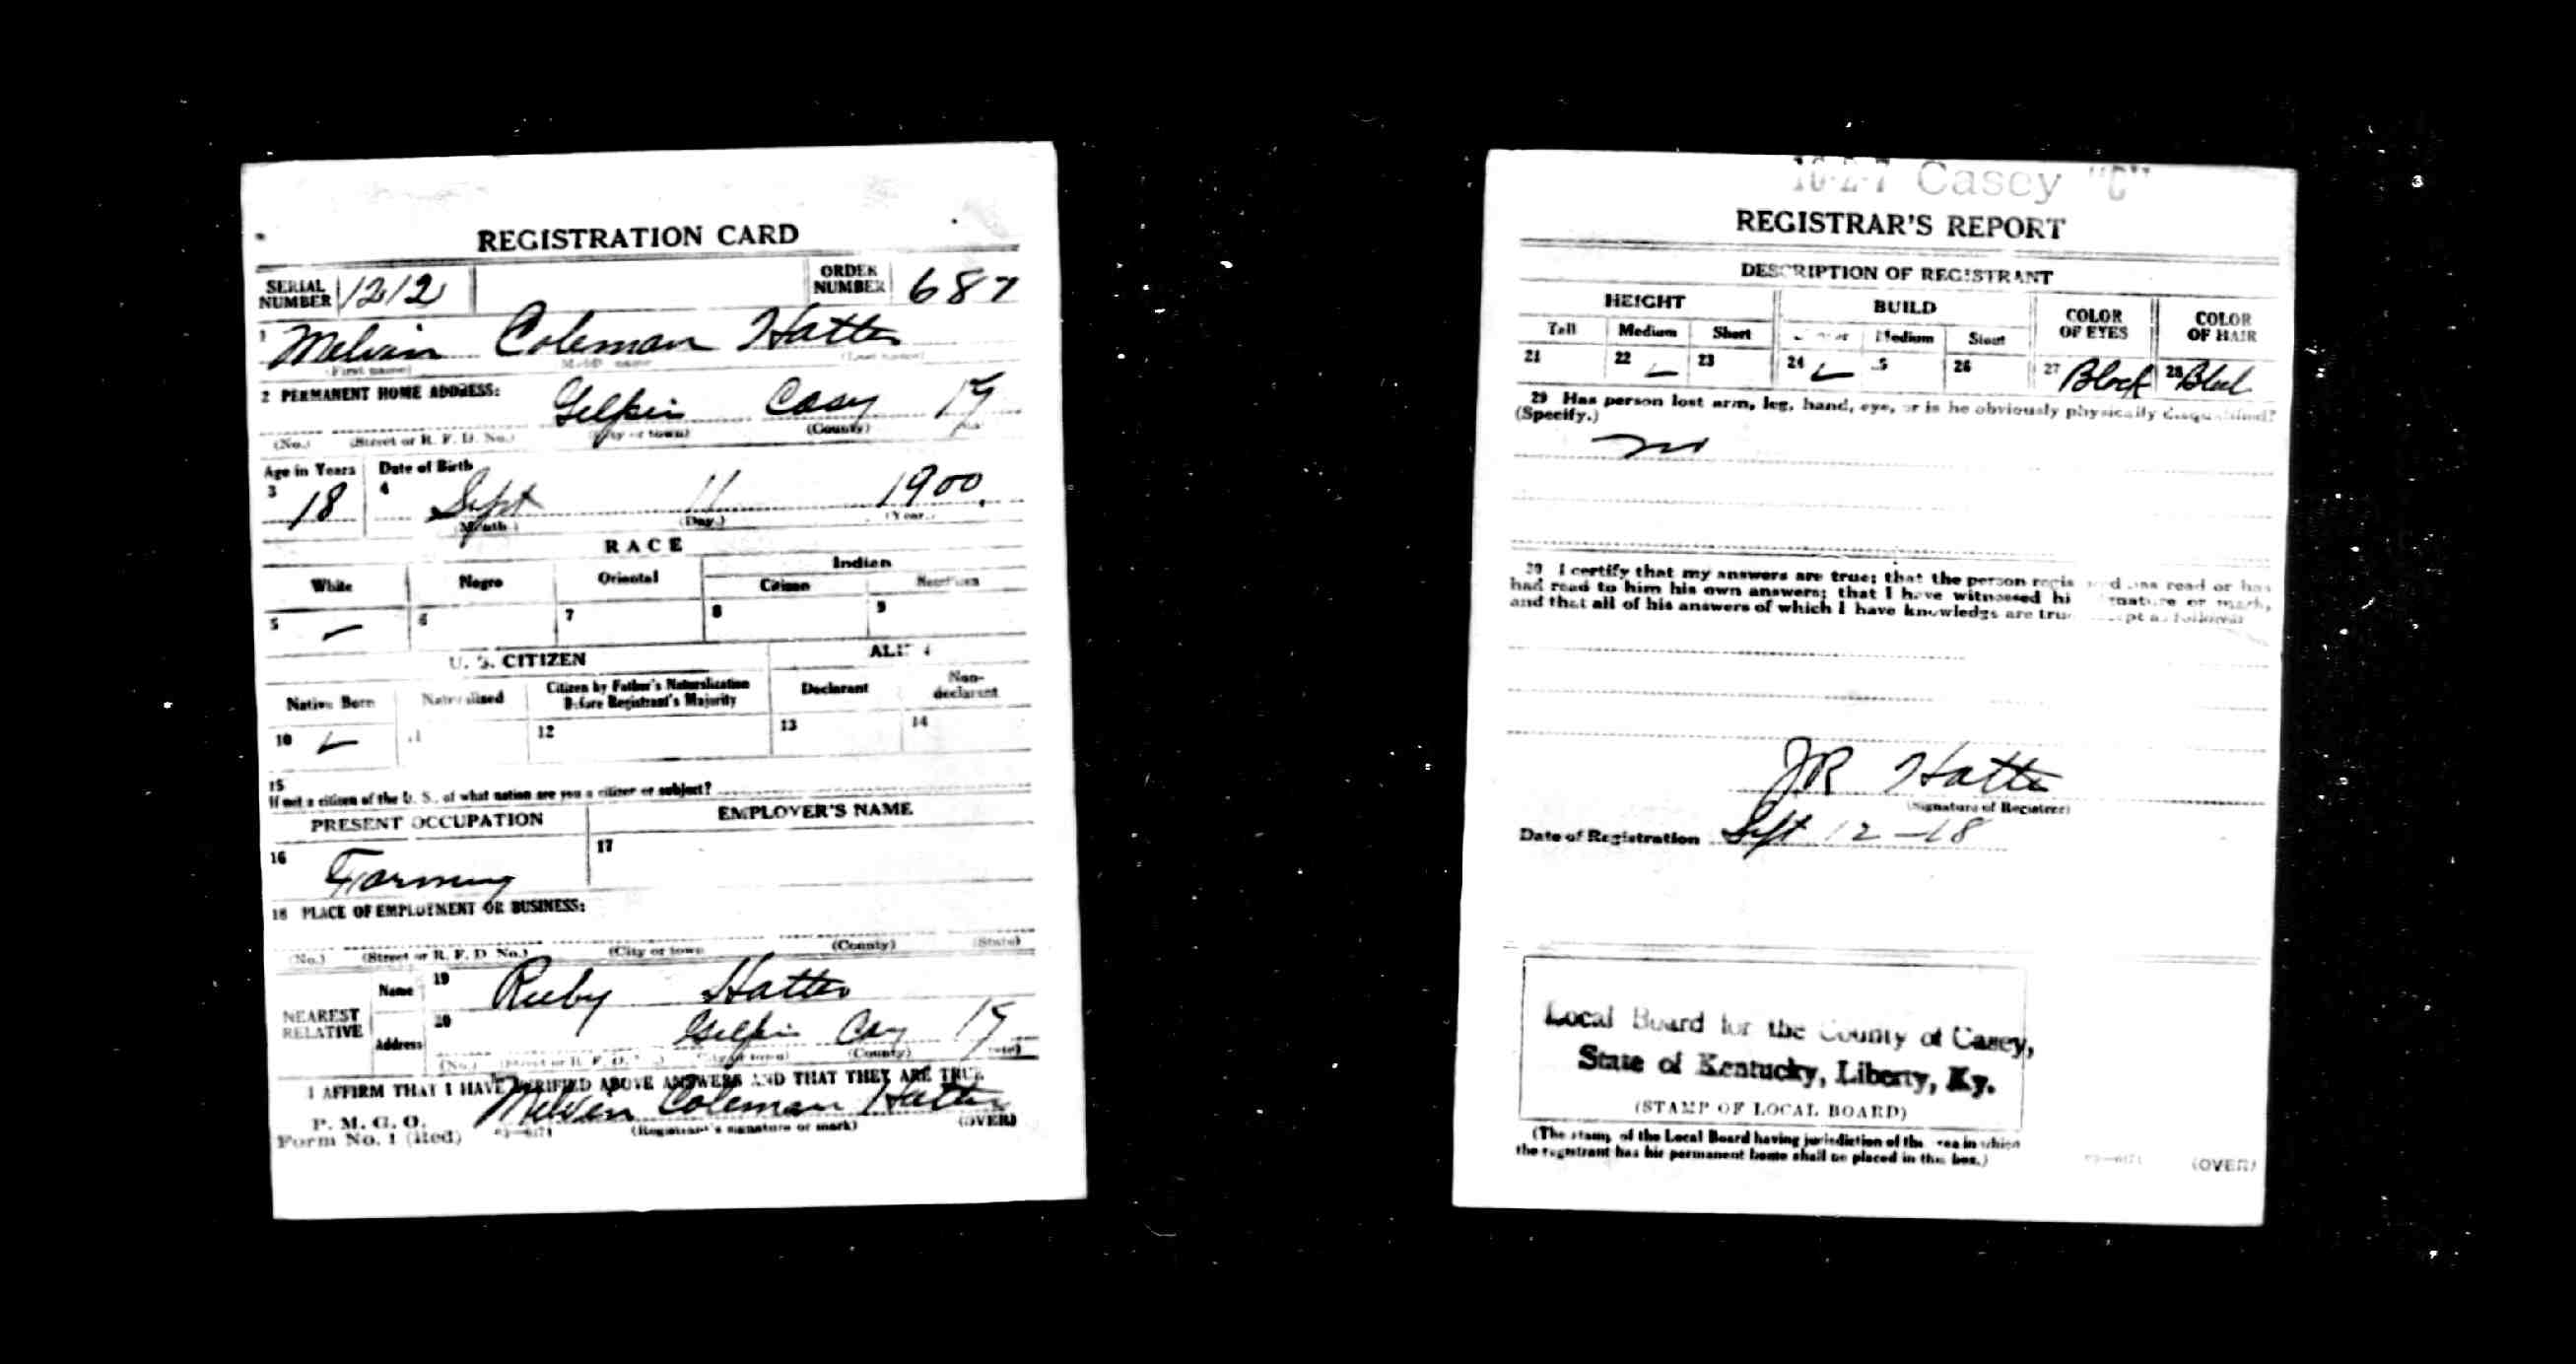 REGISTRATION CARD
SERIAL NUMBER 1212 ORDER NUMBER 687
1 Melvin Coleman Hatter
(First name) (Last name)
2 PERMANENT HOME ADDRESS: Gilpin Casy Ky
(No.) (Street or R. F. D. No.) (City or town) (County)
Age in Years Date of Birth
3 18 4 Sept 11 1900
(Month.) (Day.) (Year.)
RACE
White Negro Oriental Indian
Citizen
5 6 7 8 9
U. S. CITIZEN
Native Born Naturalized Citizen by Father's Naturalization Before Registrant's Majority Declarant Non-declarant
10 12 13 14
15
If not a citizen of the U. S., of what nation are you a citizen or subject?
PRESENT OCCUPATION EMPLOYER'S NAME
16 Farming 17
18 PLACE OF EMPLOYMENT OR BUSINESS:
(No.) (Street or R. F. D. No.) (City or town (County) (State)
NEAREST RELATIVE Name 19 Ruby Hatter
Address 20 Gilpin Cay Ky
(No.) (City or town) (County)
I AFFIRM THAT I HAVE VERIFIED ABOVE ANSWERS AND THAT THEY ARE TRUE
P. M. G. O. Melvin Coleman Hatter
Form No. 1 (Red) (Registrant's signature or mark) (OVER)
16-2-7 Casey "C"
REGISTRAR'S REPORT
DESCRIPTION OF REGISTRANT
HEIGHT BUILD COLOR OF EYES COLOR OF HAIR
Tall Medium Short Medium Stout
21 22 23 24 26 27 Black 28
29 Has person lost arm, leg, hand, eye, or is he obviously physically disqualified?
(Specify.)
no
30 I certify that my answers are true; that the person has read or has
had read to him his own answers; that I have witnessed or mark,
and that all of his answers of which I have knowledge are true
JR Hatter
(Signature of Registrar)
Date of Registration Sept 12 - 18
Local Board for the County of Casey,
State of Kentucky, Liberty, Ky.
(STAMP OF LOCAL BOARD)
(The stamp of the Local Board having jurisdiction of the area in which
the registrant has his permanent home shall be placed in this box.)
(OVER)